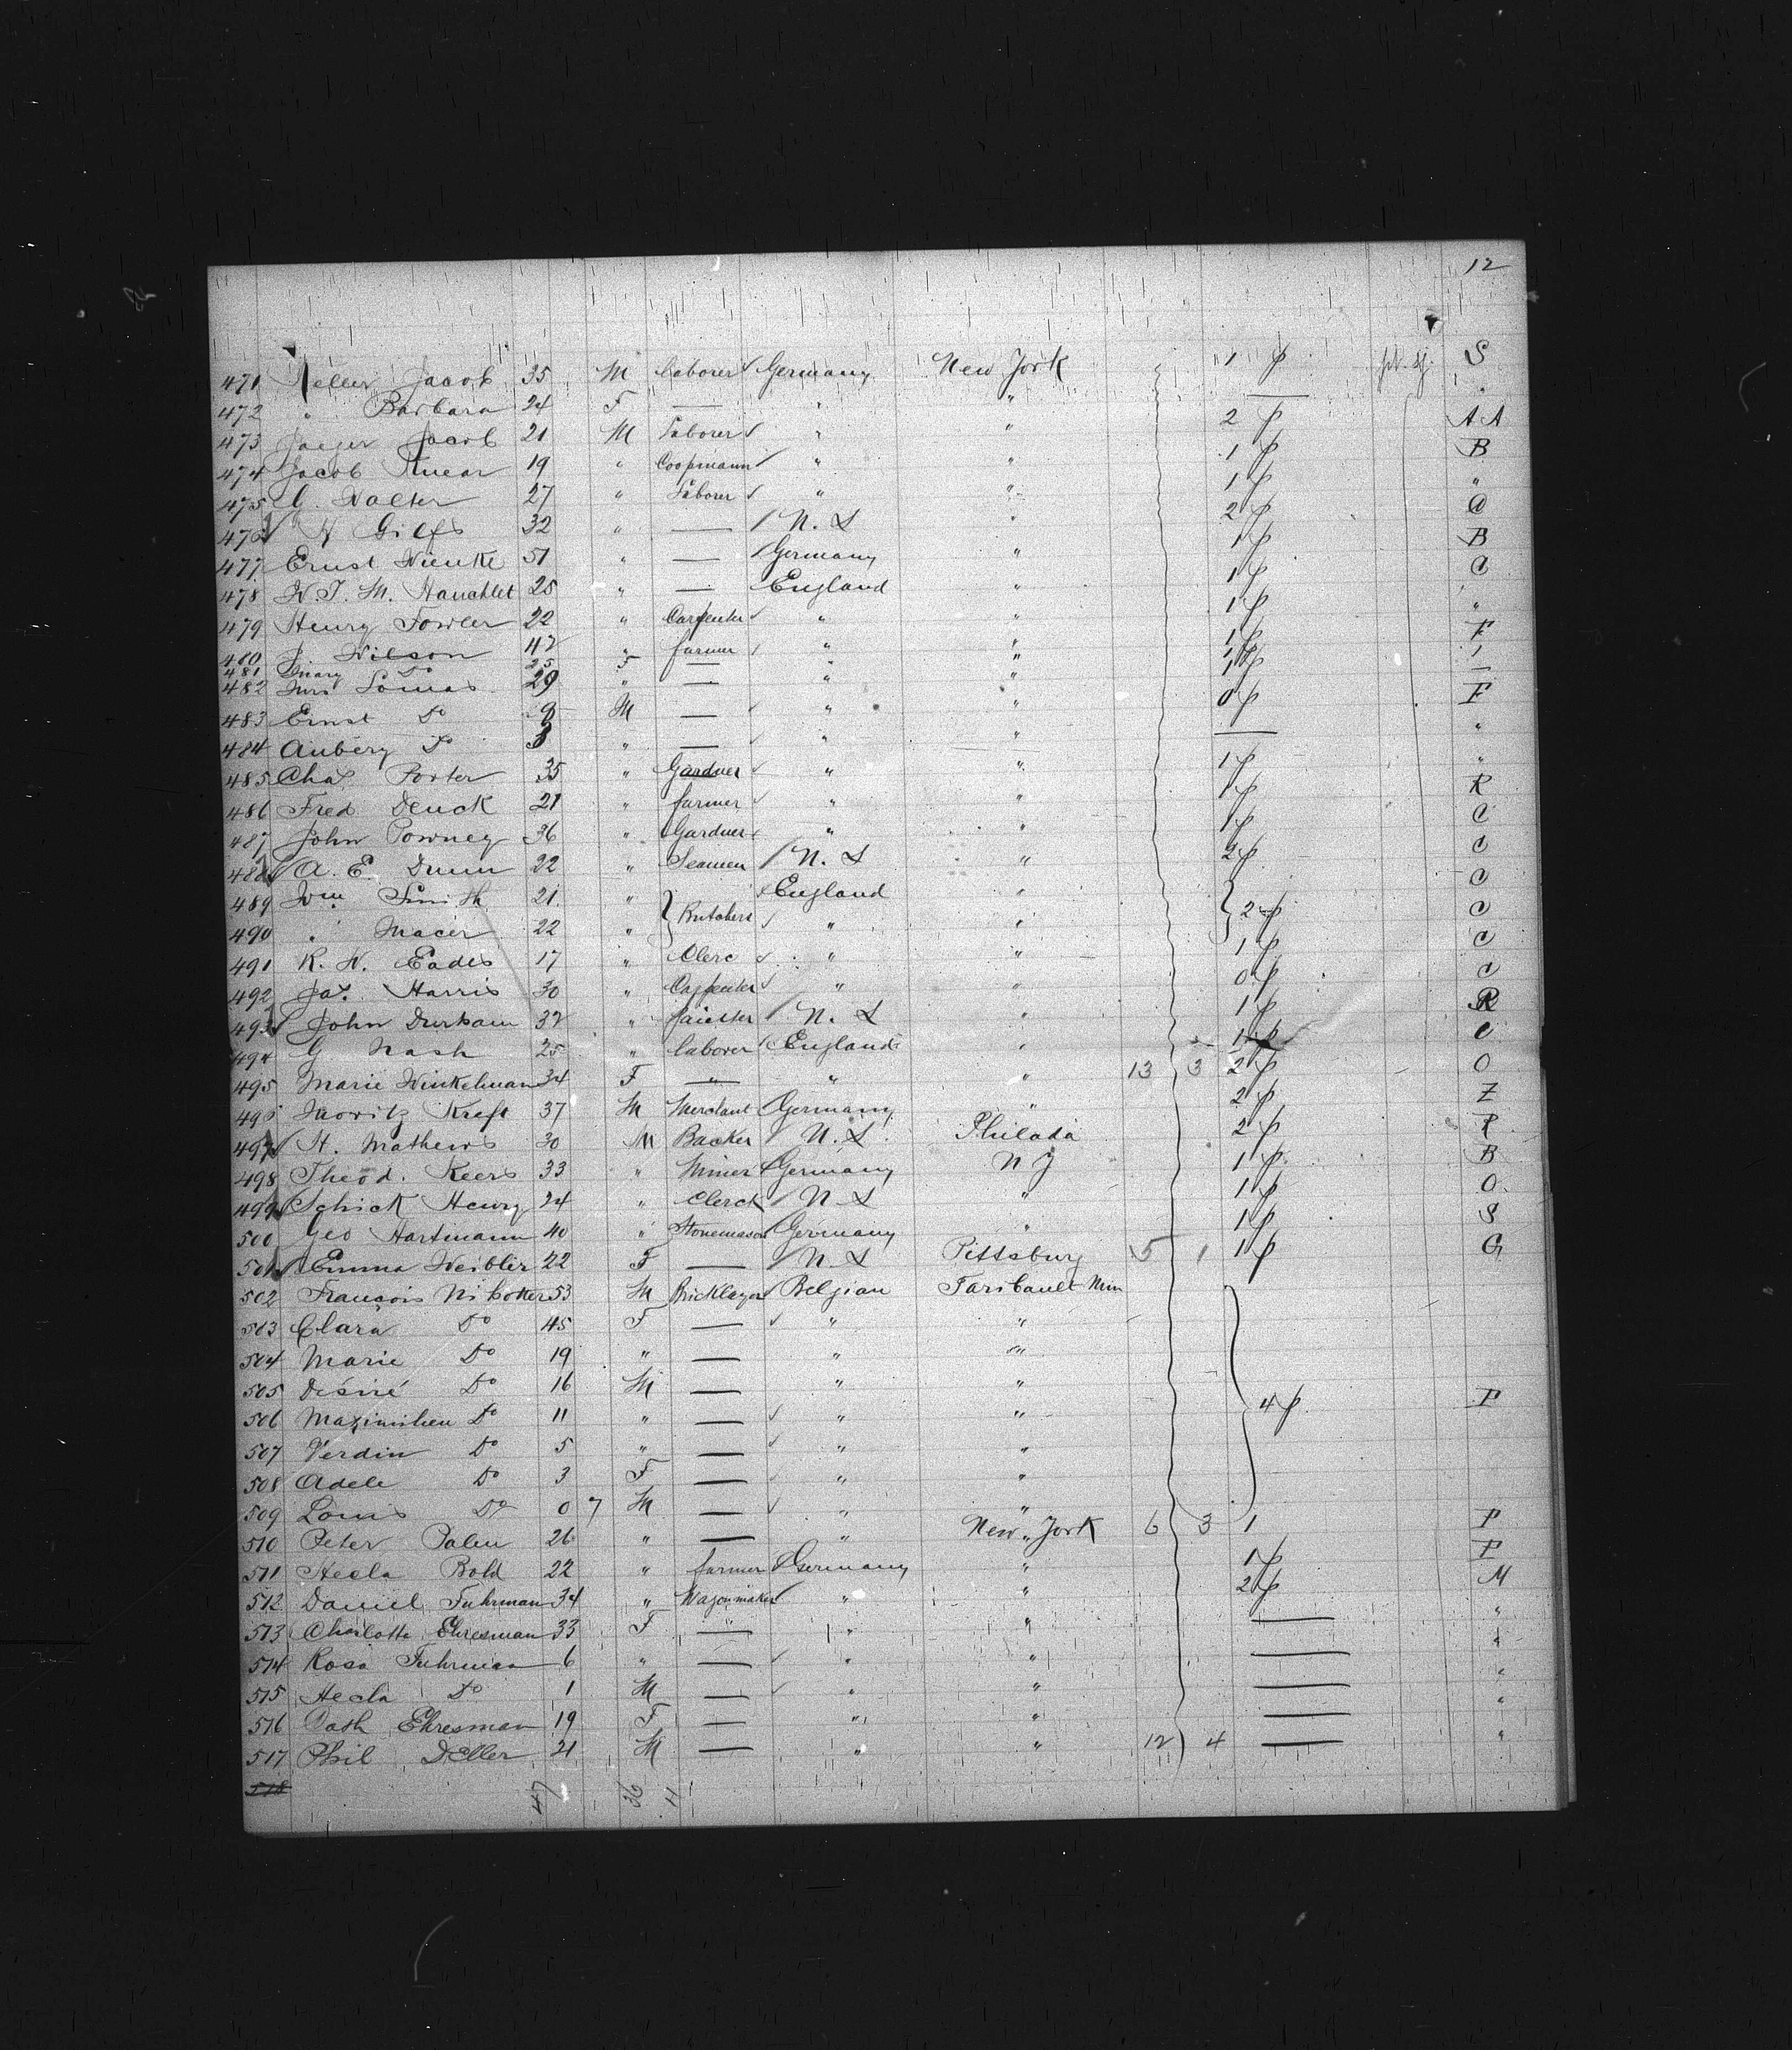 12
471 Keller Jacob 35 M laborer Germany New York 1 p S
472 " Barbara 24 F — " " — "
473 Jaeger Jacob 21 M Laborer " " 2 p AA
474 Jacob 19 " Coopmann " " 1 p B
475 G. Walter 27 " Laborer " " 1 p "
476 32 " — N. S " 2 p C
477 Ernst Nienke 51 " — Germany " 1 p B
478 W. T. M. 25 " — England " 1 p C
479 Henry Fowler 22 " Carpenter " " 1 p "
480 J. Wilson 42 " farmer " " 1 p F
481 Mary Do 25 F — " " 1 p
482 Mrs Lomas 29 " — " " 1 p —
483 Ernst Do M — " " 0 p F
484 Aubery Do 3 " — " " — "
485 Chas Porter 35 " Gardner " " 1 p "
486 Fred Deuck 21 " farmer " " 1 p R
487 John Powney 36 " Gardner " " 1 p C
488 A. E. Dunn 22 " Seamen N. S " 2 p C
489 Wm Smith 21 " Butchers England " 2 p C
490 " Macer 22 " " " C
491 R. W. Eades 17 " Clerc " " 1 p C
492 Jas. Harris 30 " Carpenter " " 0 p C
493 John Durham 32 " N. S " 1 p R
494 G Nash 25 " laborer England " 1 p C
495 Marie Winkelman 34 F — " " 13 3 2 p O
496 Moritz Kreft 37 M Merchant Germany " 2 p Z
497 H. Mathews 30 M Backer N. S. Philada 2 p P
498 Theod. Keers 33 " Miner Germany N J 1 p B
499 Schick Henry 24 " Clerck N S " 1 p O
500 Geo Hartmann 40 " Stonemason Germany " 1 p S
501 Emma Weibler 22 F — N. S Pittsburg 5 1 1 p G
502 François 53 M Bricklayer Belgian Faribault Min
503 Clara Do 45 F — " "
504 Marie Do 19 " — " "
505 Désiré Do 16 M — " "
506 Maximilien Do 11 " — " " 4 p P
507 Verdin Do 5 " — " "
508 Adele Do 3 F — " "
509 Louis Do 0 7 M — " "
510 Peter Palen 26 " — " New York 6 3 1 P
511 Hecla Bold 22 " farmer Germany " 1 p P
512 Daniel Fuhrman 34 " Wagonmaker " " 2 p M
513 Charlotte Ehresman 33 F — " " — "
514 Rosa Fuhrman 6 " — " " — "
515 Hecla Do 1 M — " " — "
516 Cath Ehresman 19 F — " " — "
517 Phil DEller 21 M — " " 12 4 — "
518
47 36 11